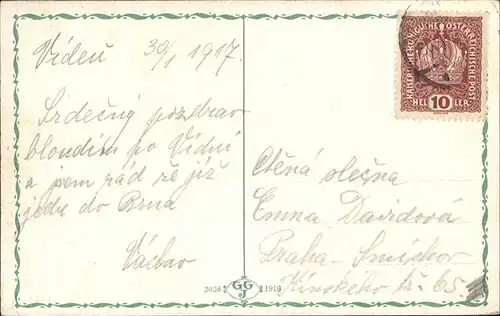 Vídeň 30/1 1917.
Srdečný pozdrav
bloudím po Vídni
a jsem rád že již
jedu do Brna
Václav
KAISERLICHE KÖNIGLICHE ÖSTERREICHISCHE POST
HELLER
10
Ctěná slečna
Emma Davidová
Praha - Smíchov
Kinského tř. 65.
2026 GGJ 1916